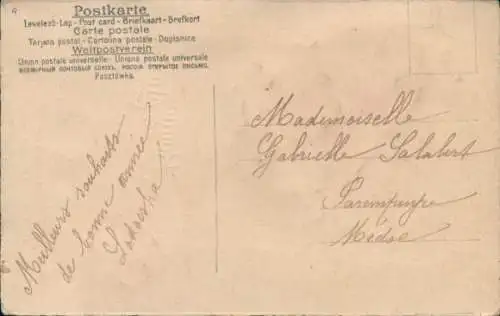 Postkarte
Levelező-Lap - Post card - Briefkaart - Brefkort
Carte postale
Tarjeta postal - Cartolina postale - Dopisnice
Weltpostverein
Union postale universelle - Unione postale universale
ВСЕМІРНЫЙ ПОЧТОВЫЙ СОЮЗЪ. РОССІЯ ОТКРЫТОЕ ПИСЬМО.
Pocztówka
Meilleurs souhaits
de bonne année
Mademoiselle
Gabrielle Salabert
Parempuyre
Médoc